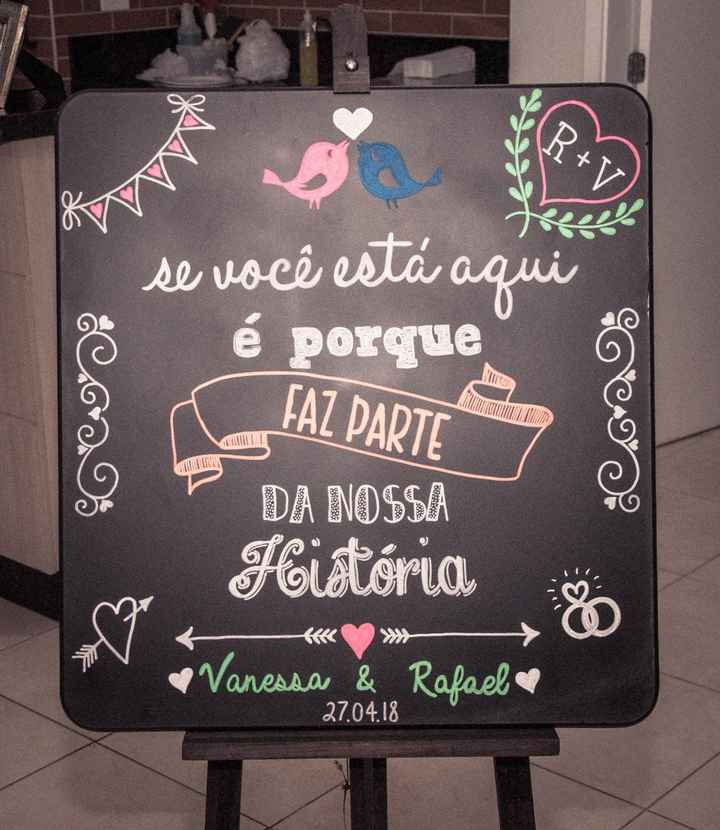 R + V
se você está aqui
é porque
FAZ PARTE
DA NOSSA
História
Vanessa & Rafael
27.04.18